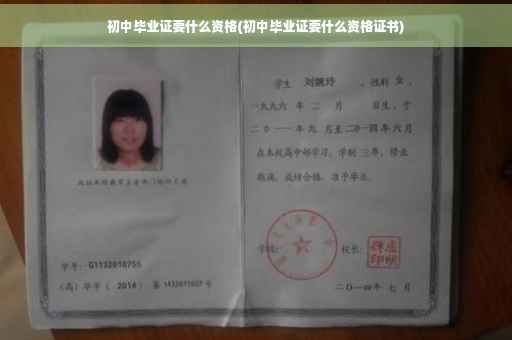 初中毕业证要什么资格(初中毕业证要什么资格证书)
学生 刘婉玲 ，性别 女 ，
一九九六 年 二 月 日生，于
二〇一一 年 九 月至 二〇一四 年 六 月
在本校高中部学习，学制 三 年，修业
期满，成绩合格，准予毕业。
学校： 校长：
学号： G1132010755
（高）毕字（ 2014 ）第 1432011027 号
二〇一四年 七 月